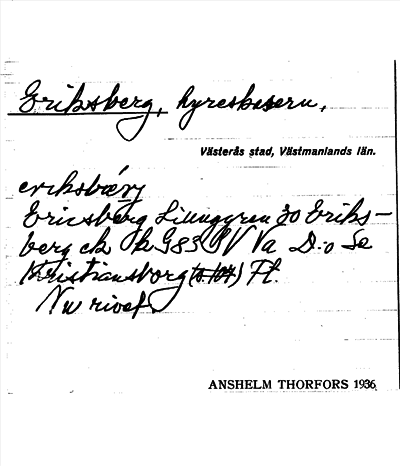 Eriksberg, hyreskasern,
Västerås stad, Västmanlands län.
eriksbærj
Ericsberg Ljunggren 30 Eriks-
berg ek k G83 SV Va D:o Se
Kristiansborg Ft.
Nu rivet
ANSHELM THORFORS 1936